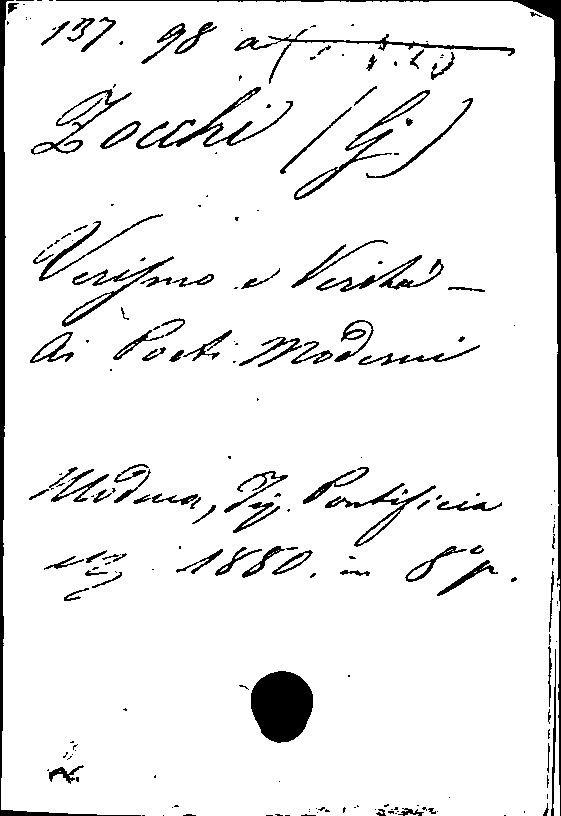 137. 98 a
Zocchi (G)
Verismo e Verità –
Ai Poeti Moderni
Modena, Tip. Pontificia
1880. in 8º p.